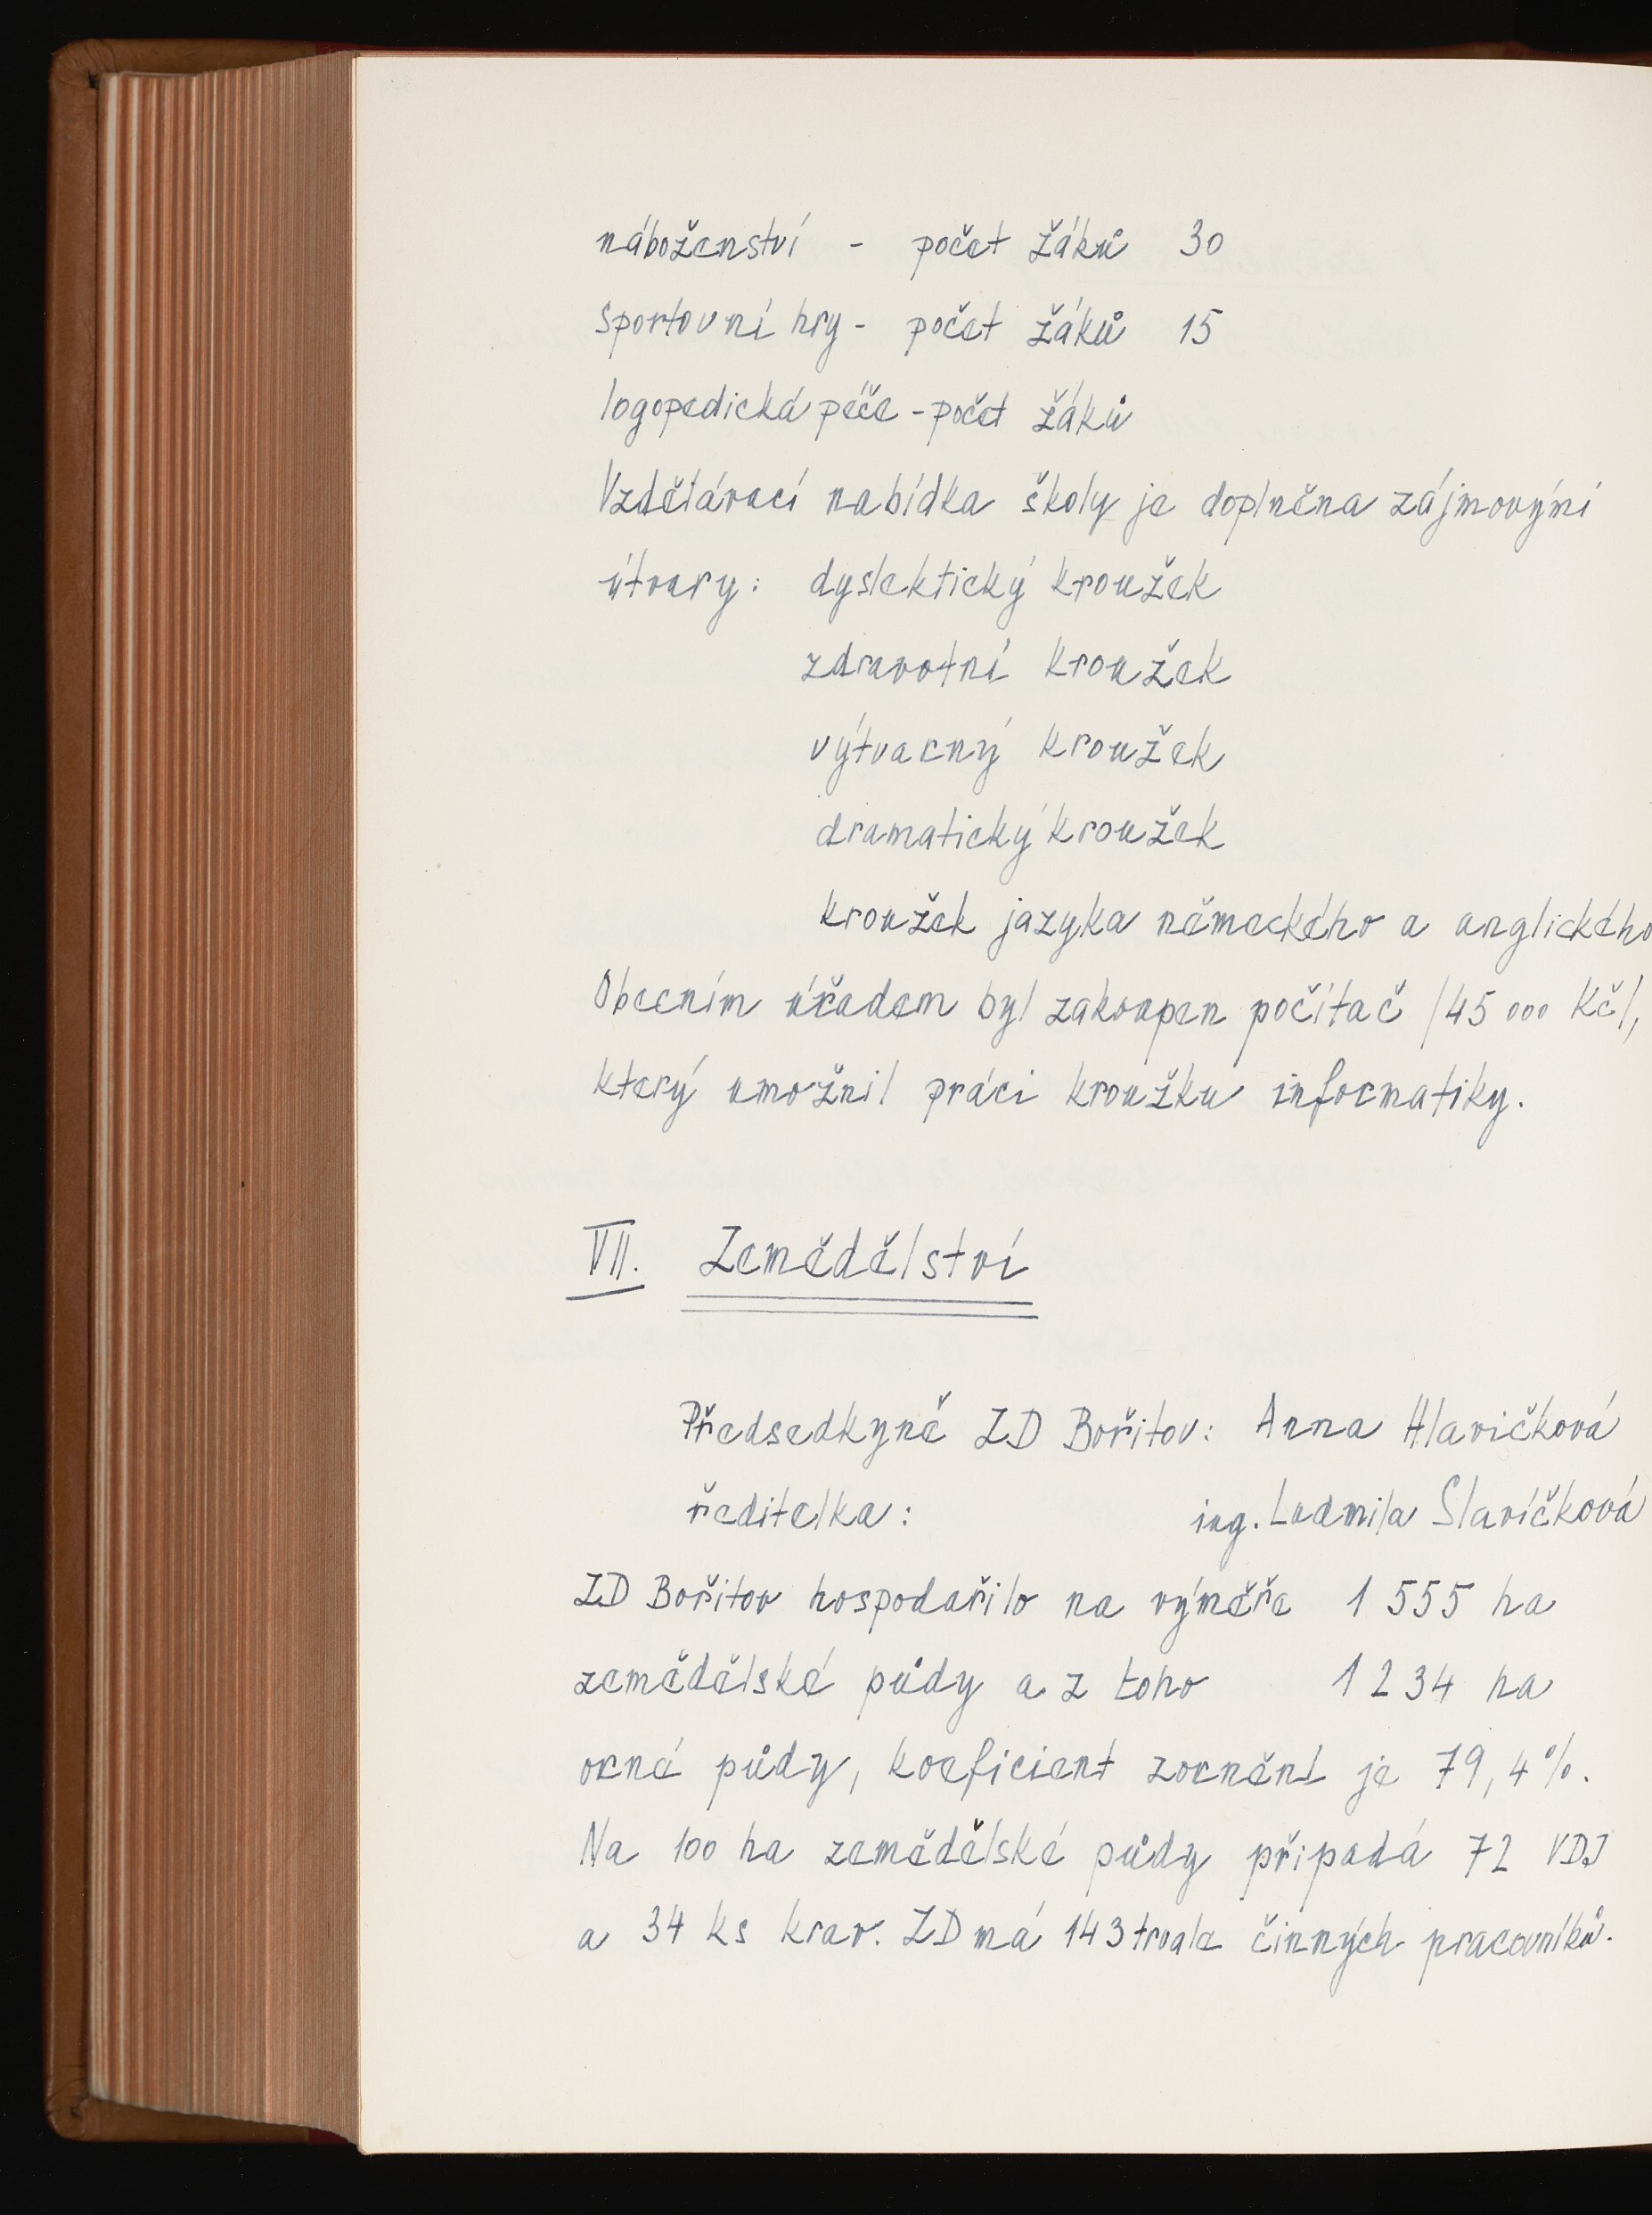 náboženství - počet žáků 30
sportovní hry - počet žáků 15
logopedická péče - počet žáků
Vzdělávací nabídka školy je doplněna zájmovými
útvary: dyslektický kroužek
zdravotní kroužek
výtvarný kroužek
dramatický kroužek
kroužek jazyka německého a anglického
Obecním úřadem byl zakoupen počítač /45 000 Kč/,
který umožnil práci kroužku informatiky.
VII. Zemědělství
Předsedkyně ZD Bořitov: Anna Hlavičková
ředitelka: ing. Ludmila Slavíčková
ZD Bořitov hospodařilo na výměře 1 555 ha
zemědělské půdy a z toho 1 234 ha
orné půdy, koeficient zornění je 79,4%.
Na 100 ha zemědělské půdy připadá 72 VDJ
a 34 ks krav. ZD má 143 trvale činných pracovníků.